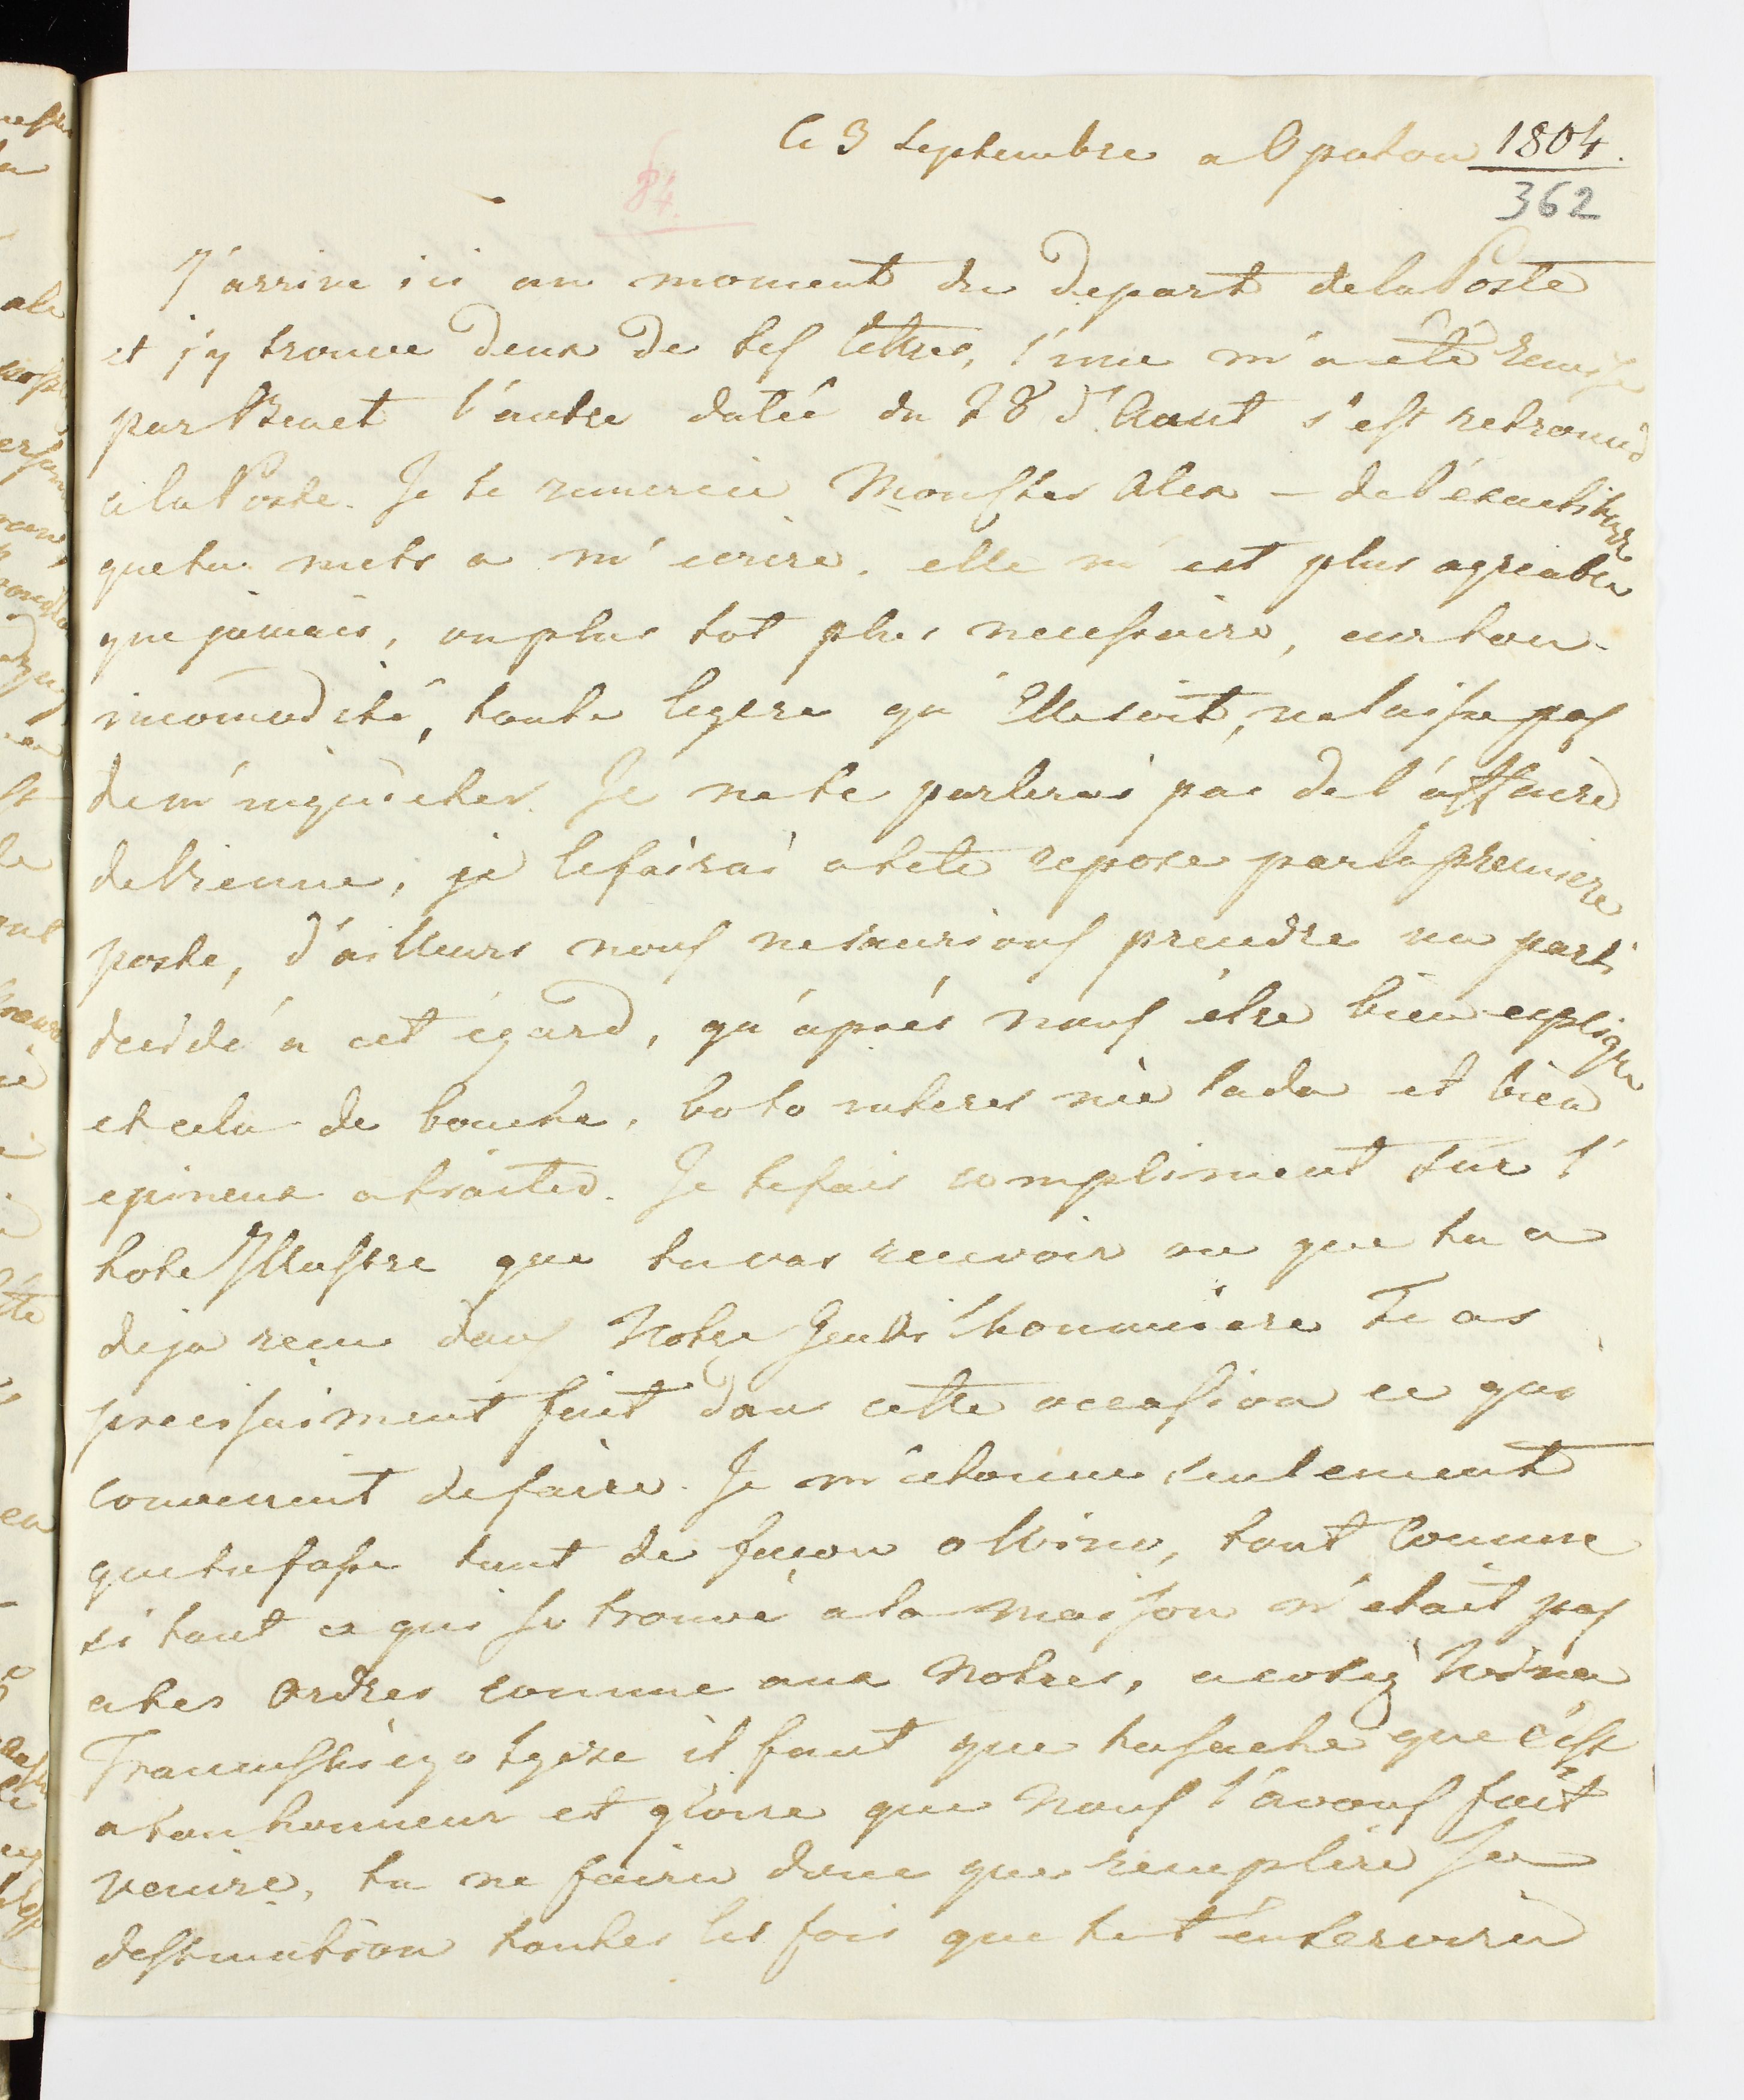 Ce 3 Septembre a Opatow 1804.
84.
362
J'arrive ici au moment du Depart dela Poste
et j'y trouve Deux De tes lettres, l'une m'a eté remise
par Benet l'autre datée du 28 d'Aout s'est retrouvé
a la Poste. Je te remercie Monster Alex – de l'exactitude
que tu mets a m'ecrire. elle m'est plus agreable
que jamais, ou plus tot plus necessaire, car ton
incomodité, toute legere qu'Elle soit, ne laisse pas
de m'inquieter. Je ne te parlerai pas de l'affaire
de Vienne, je le fairai a tete repose par la premiere
poste, d'ailleurs nous ne saurions prendre un parti
decidé a cet égard, qu'après nous étre bien expliqué
et cela de bouche, bo to interes nie lada et bien
epineux a traiter. Je te fais compliment sur l'
hote Illustre que tu vas recevoir ou que tu a
deja recu dans Notre Gentilhommiere Tu as
precisaiment fait dans cette occasion ce qui
convenoit de faire. Je m'etonne seulement
que tu fasse tant de façon o Wino, tout Comme
si tout ce qui se trouve a la maison n'etait pas
a tes Ordres comme aux Notres, a coté Wina
Francuskiego tyere il faut que tu sache que c'est
a ton honneur et gloire que Nous l'avons fait
venire, tu ne faira donc que remplire sa
destination toutes les fois que tu t'en servira